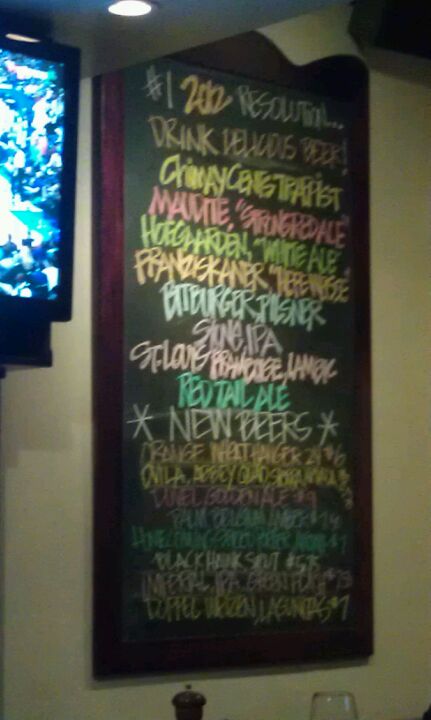 #1 2012 RESOLUTION...
DRINK DELICIOUS BEER!
CHIMAY CENTS TRAPPIST
MAUDITE, "STRONG RED ALE"
HOEGAARDEN, "WHITE ALE"
FRANZISKANER "HEFEWEISSE"
BITBURGER PILSNER
STONE, IPA
ST. LOUIS FRAMBOISE, LAMBIC
RED TAIL ALE
* NEW BEERS *
ORANGE WHEAT HANGAR 24 $6
OVILA, ABBEY QUAD
DUVEL GOLDEN ALE $9
PALM BELGIAN AMBER $7
BLACK HAWK STOUT $5.75
IMPERIAL IPA GREEN FLASH
DOPPEL WEIZEN, LAGUNITAS $7